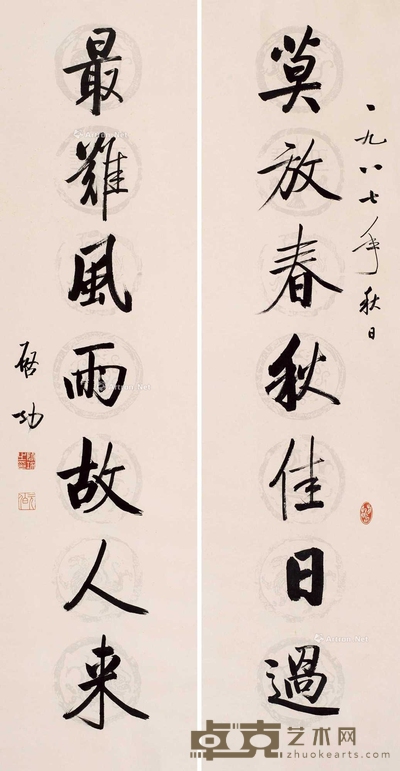 一九八七年秋日
莫放春秋佳日過
最難風雨故人来
启功
卓克艺术网
www.zhuokearts.com